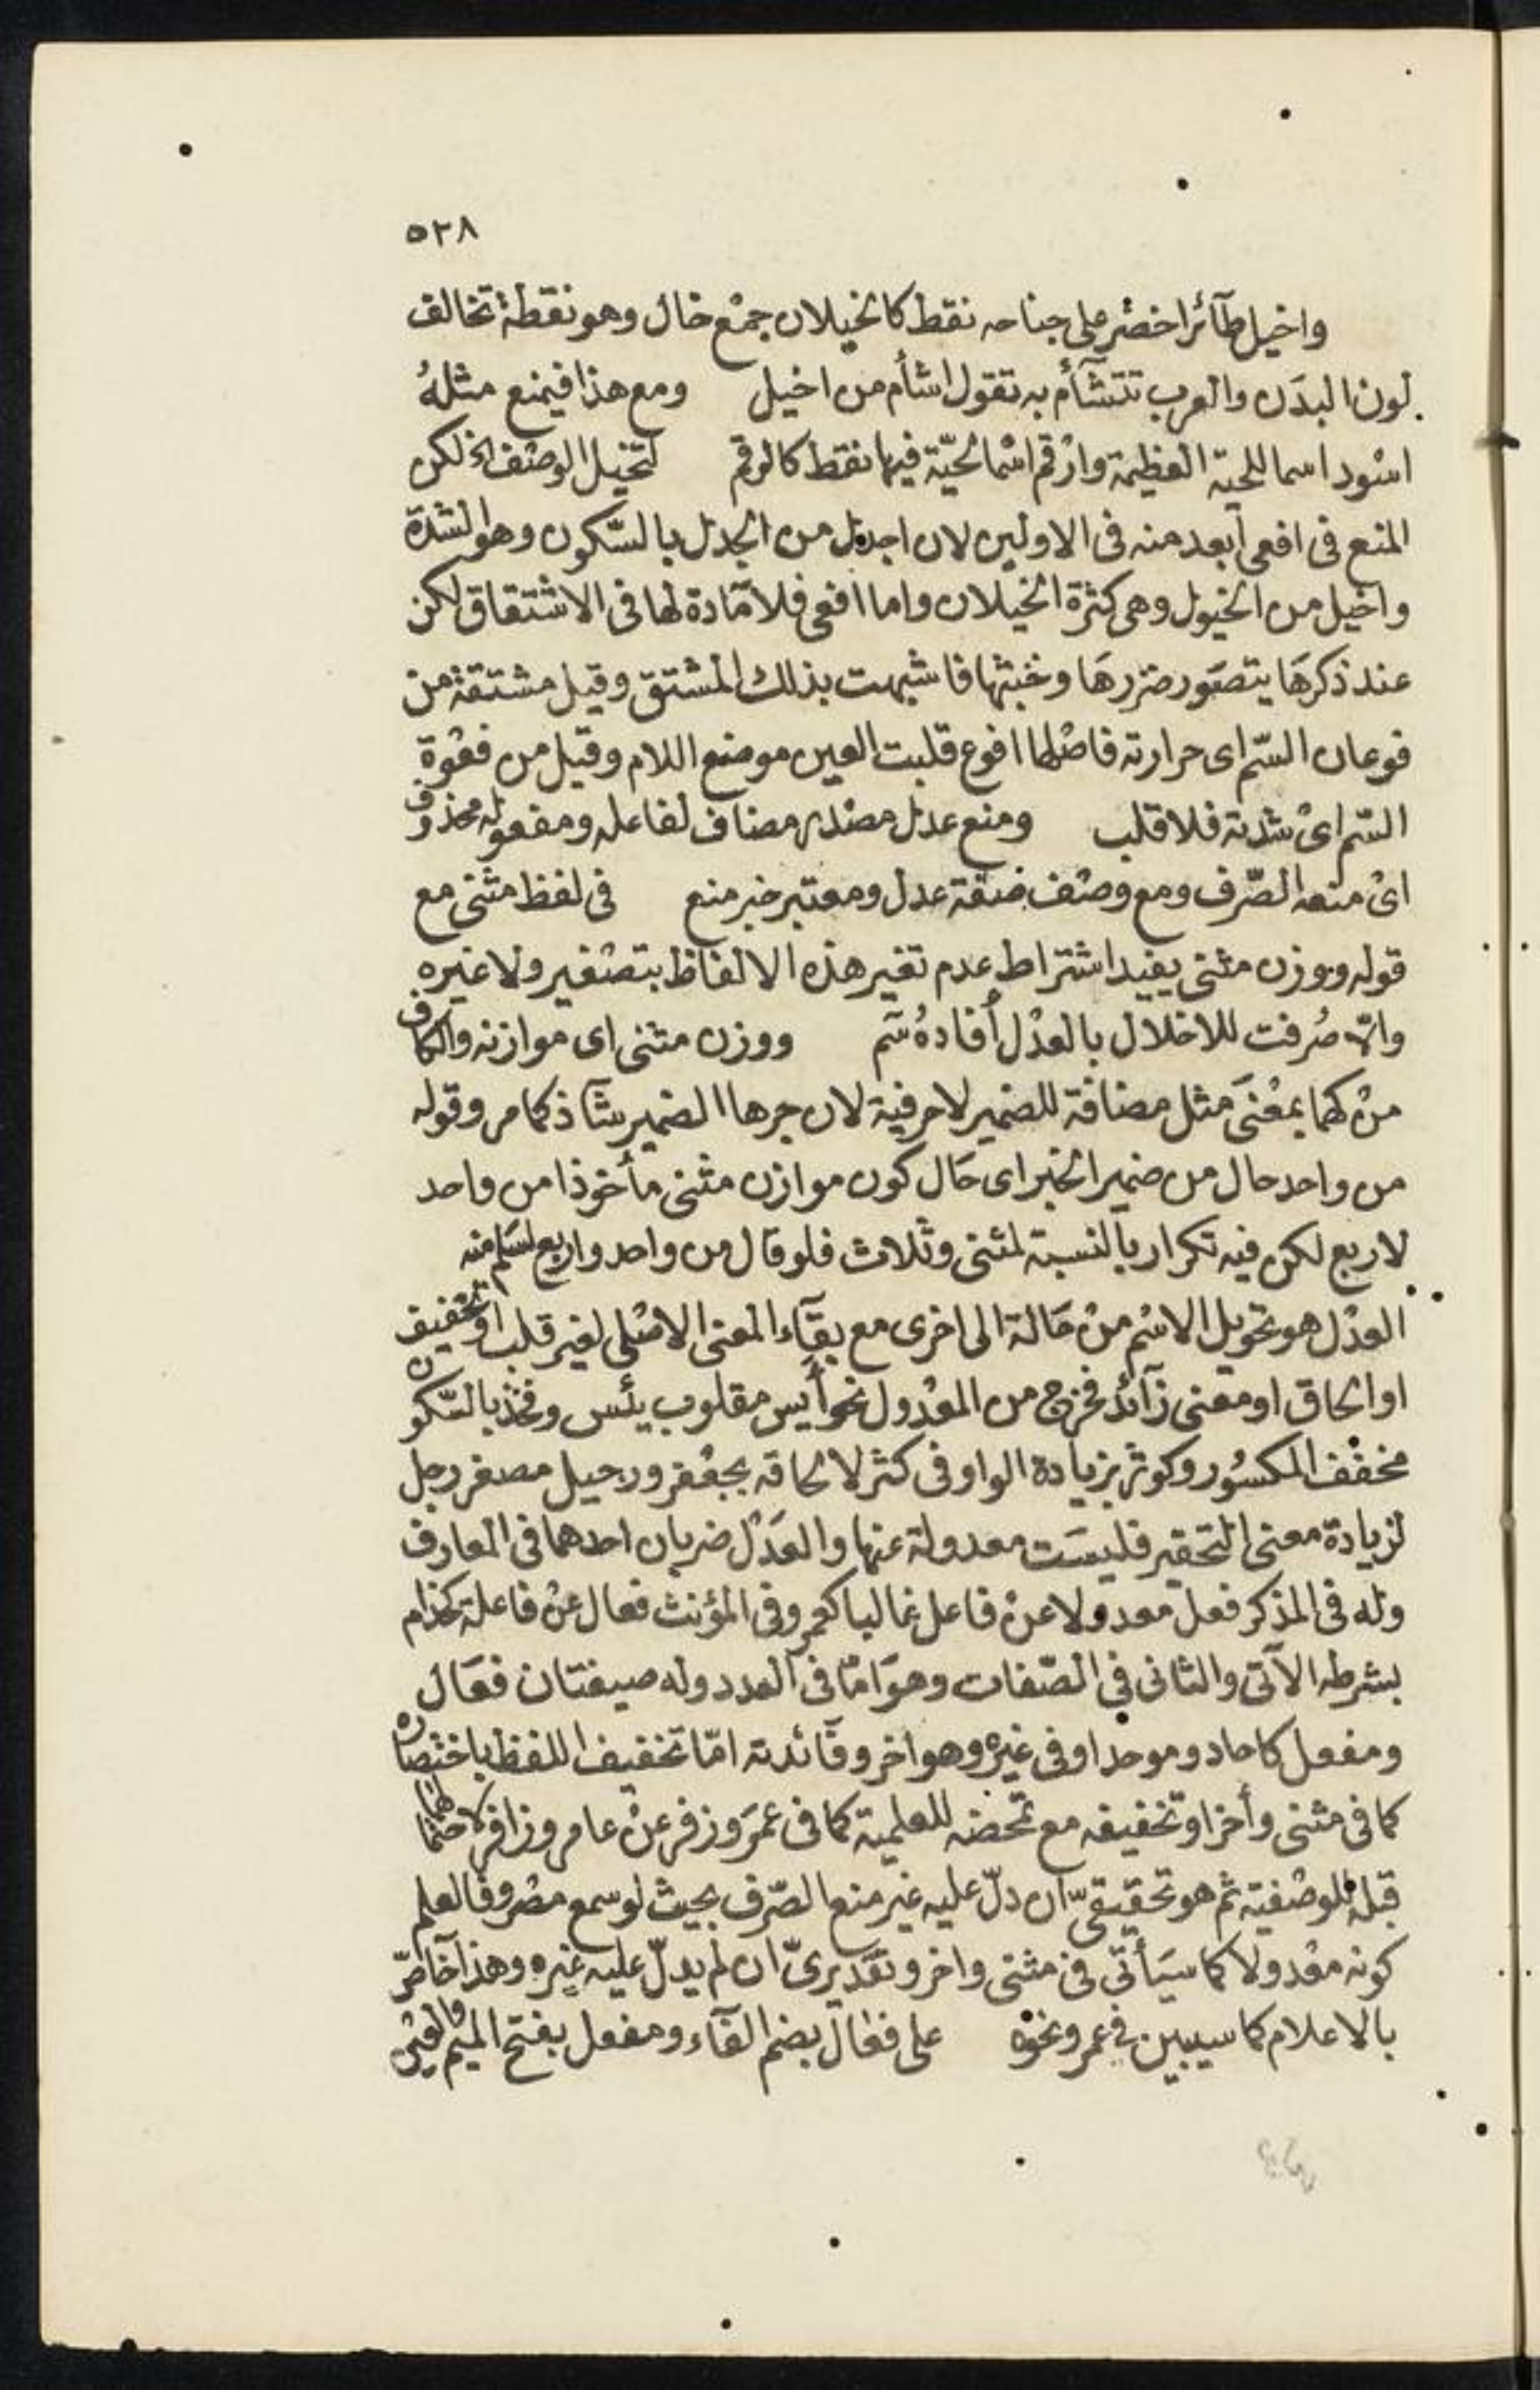 ٥٢٨
واخيل طآئر اخضر على جناحه نقط كالخيلان جمع خال وهو نقطة تخالف
لون البدن والعرب تتشآءم به تقول اشأم من اخيل ومع هذا فيمنع مثلهُ
اسود اسما للحية العظيمة وارقم اسما لحيّة فيها نقط كالرقم لتخيل الوصف الخ لكن
المنع فى افعى ابعد منه فى الاولين لان اجدل من الجدل بالسّكون وهو الشدة
واخيل من الخيول وهى كثرة الخيلان واما افعى فلا مآدة لها فى الاشتقاق لكن
عند ذكرهَا يتصَور ضررهَا وخبثها فاشبهت بذلك المشتق وقيل مشتقة من
فوعان السّم اى حرارته فاصلها افوع قلبت العين موضع اللام وقيل من فعْوة
السّم اىْ شدته فلا قلب ومنع عدل مصْدر مضاف لفاعله ومفعوله محذوف
اىْ منعه الصّرف ومع وصْف ضفة عدل ومعتبر خبر منع فى لفظ مثنى مع
قوله ووزن مثنى يفيد اشتراط عدم تغير هذه الالفاظ بتصْغير ولا غيره
والّا صُرفت للاخلال بالعدْل أفادهُ سَم ووزن مثنى اى موازنه والكاف
منْ كهما بمعْنَى مثل مضافة للضمير لا حرفية لان جرها الضمير شآذ كما مر وقوله
من واحد حال من ضمير الخبر اى حَال كون موازن مثنى مأخوذا من واحد
لاربع لكن فيه تكرار بالنسبة لمثنى وثلاث فلو قال من واحد واربع لسَلم منه
العدْل هو تحويل الاسْم منْ حَالة الى اخرى مع بقآء المعنى الاصْلى لغير قلب او تخفيف
او الحاق او معنى زآئد فخرج من المعْدول نحو أيس مقلوب يئس وفخذ بالسّكون
مخفف المكسُور وكوثر بزيادة الواو فى كثر لالحاقه بجعْفر ورجيل مصغر رجل
لزيادة معنى التحقير فليسَت معدولة عنها والعَدْل ضربان احدهما فى المعارف
وله فى المذكر فعل معدولا عنْ فاعل غالبا كعمر وفى المؤنث فعال عنْ فاعلة كحذام
بشرطه الآتى والثانى فى الصّفات وهوَ امّا فى العدد وله صيغتان فعَال
ومفعل كاحاد وموحد او فى غيره وهو اخر وفآئدته امّا تخفيف اللفظ باختصاره
كما فى مثنى وأخر او تخفيفه مع تمحضه للعلمية كما فى عمَر وزفر عنْ عامر وزافر لاحتمالهما
قبله للوصْفية ثم هو تحقيقىّ ان دلّ عليه غير منع الصّرف بحيث لو سمع مصْروفا لعلم
كونه معْدولا كما سيَأتى فى مثنى واخر وتقديرىّ ان لم يدلّ عليه غيره وهذا خآصّ
بالاعلام كما سيبين فى عمر ونحوه على فعَال بضم الفآء ومفعل بفتح الميم والعيْن